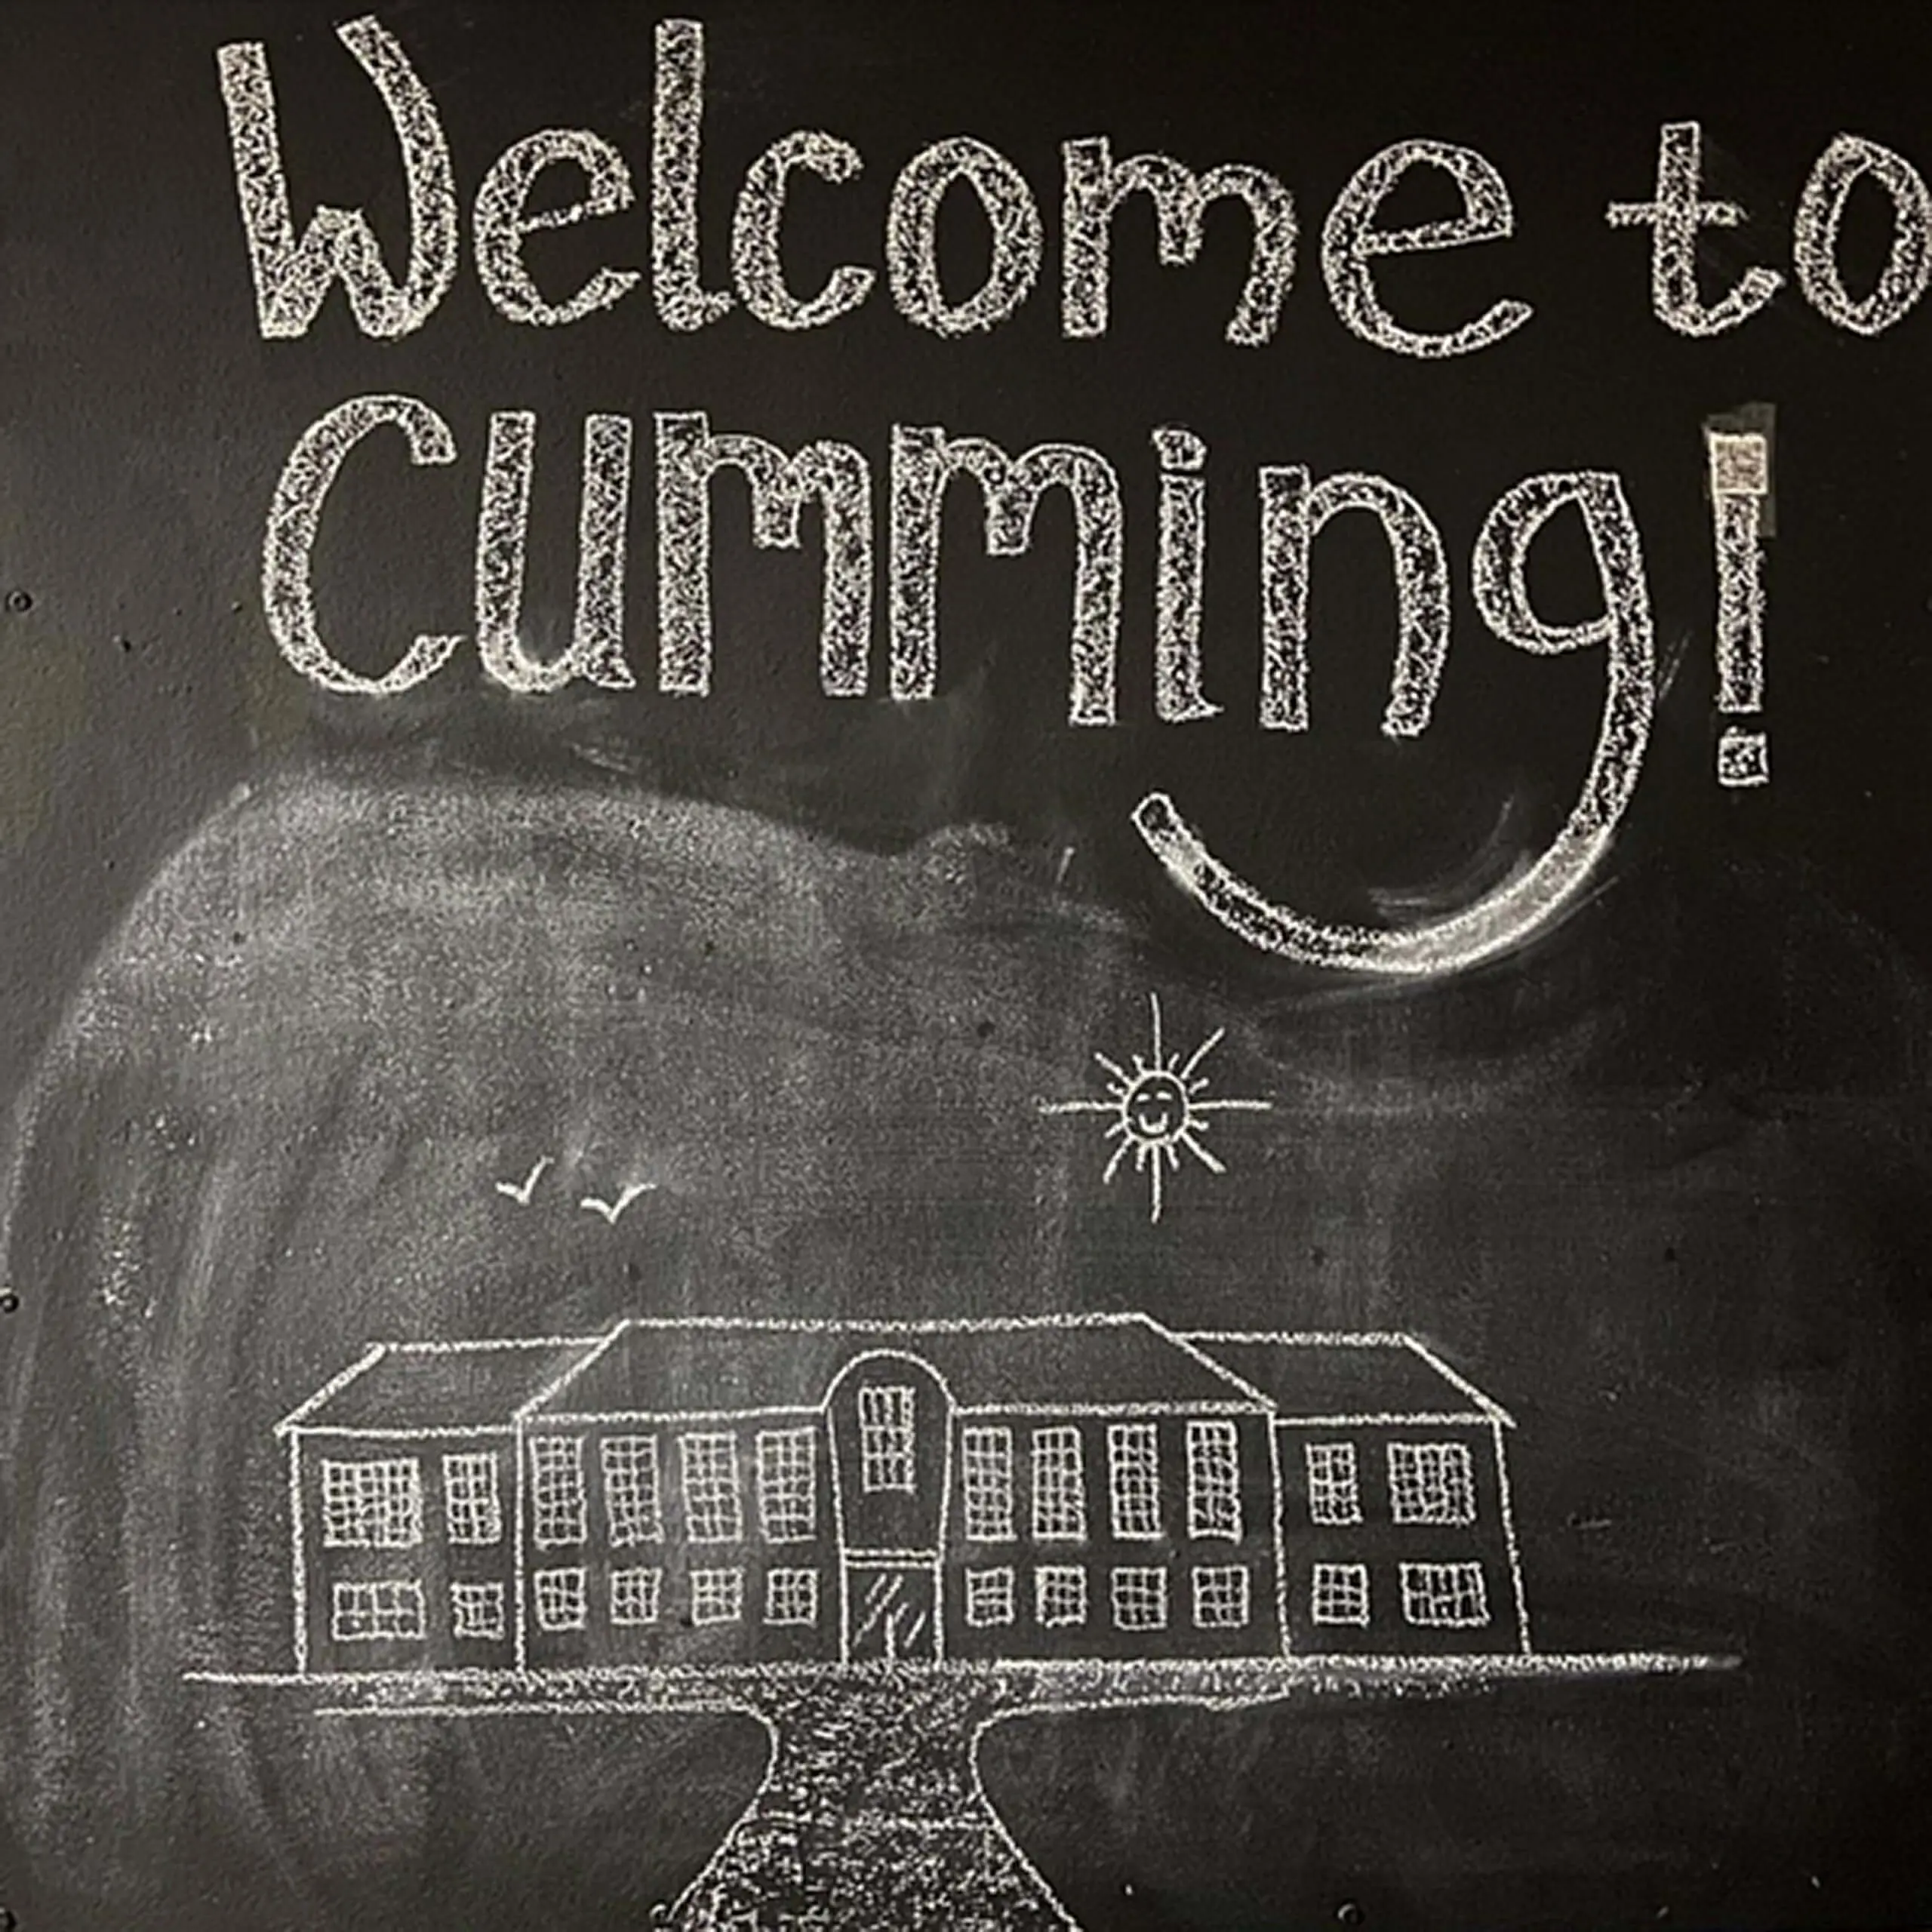 Welcome to
Cumming!